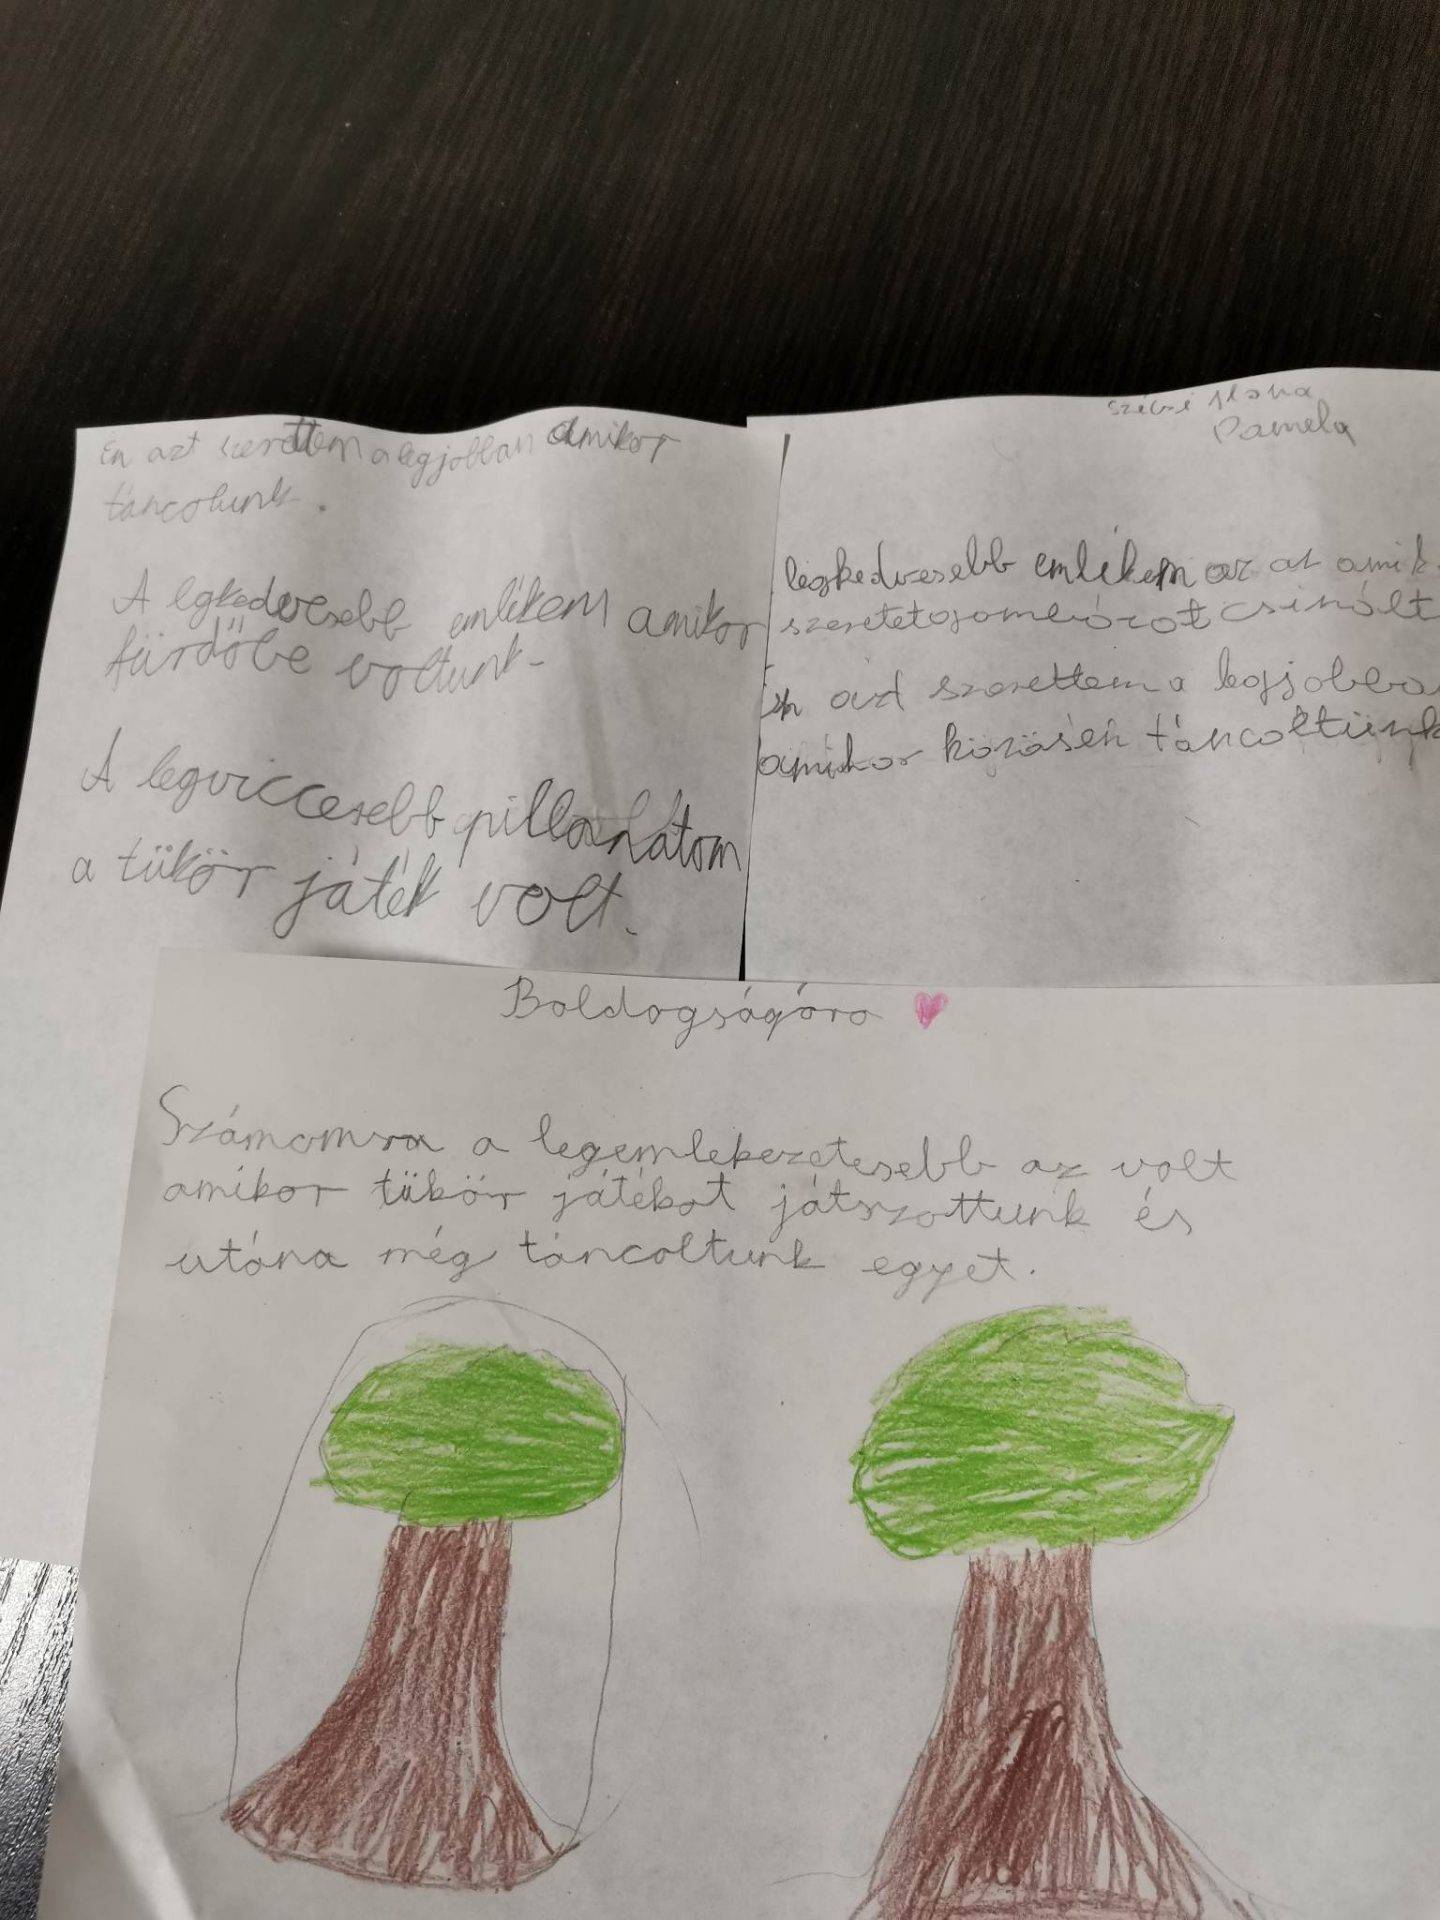 Én azt szerettem a legjobban amikor
táncolunk.
A legkedvesebb emlékem amikor
fürdőbe voltunk.
A legviccesebb pillanatom
a tükör játék volt.
Pamela
legkedvesebb emlékem az az amik
szeretetgombócot csinált
én azd szerettem a legjobba
amikor közösen táncoltunk
Boldogságóra
Számomra a legemlekezetesebb az volt
amikor tükör játékot játszottunk és
utána még táncoltunk egyet.